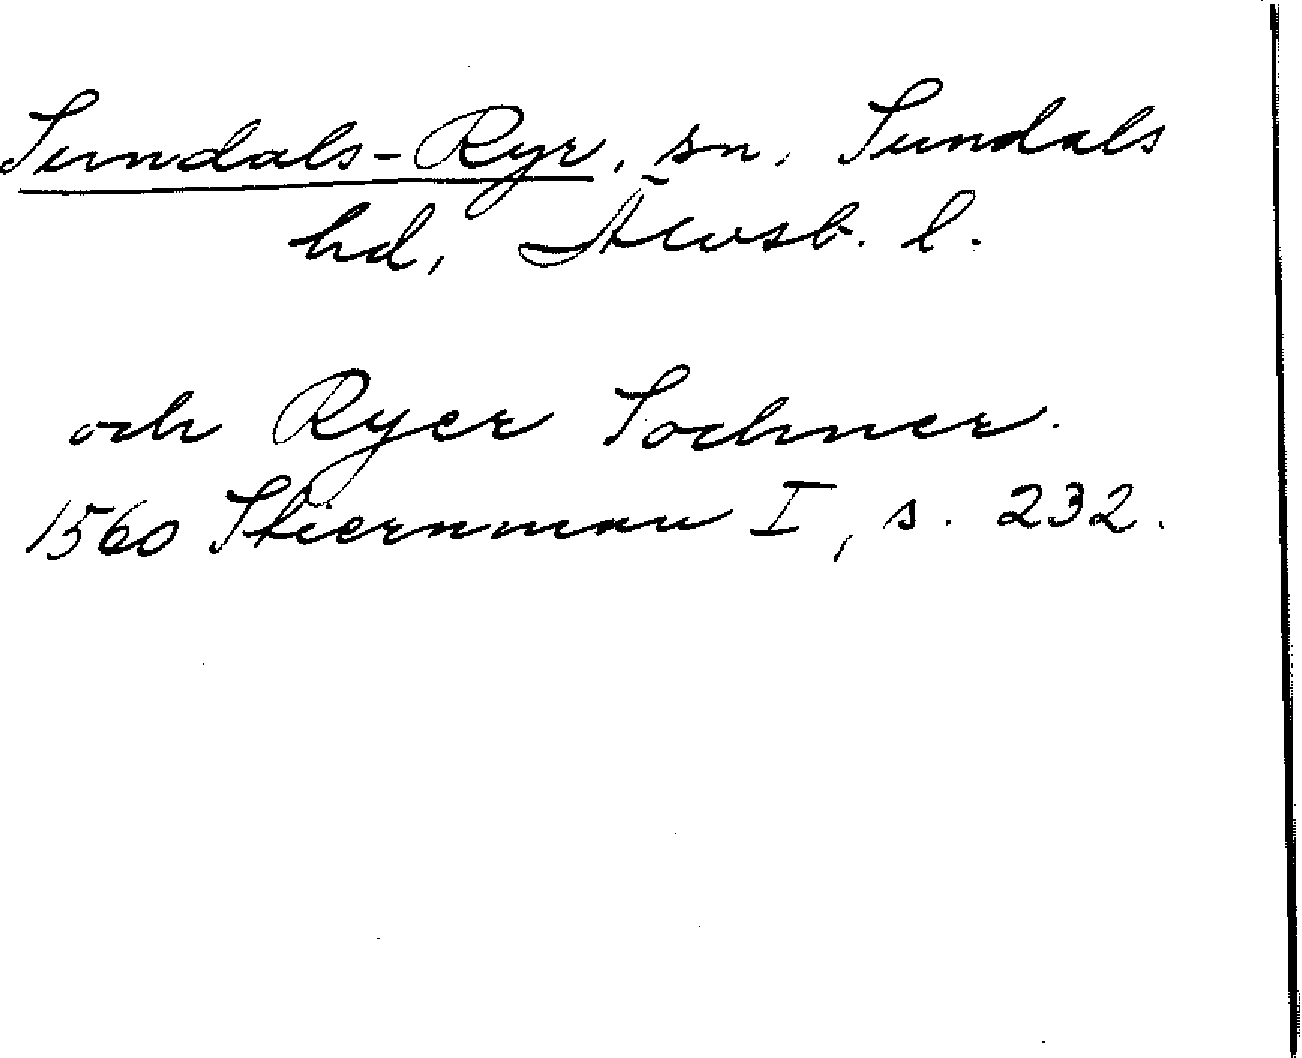 Sundals-Ryr, sn. Sundals
hd, Älvsb. l.
och Ryer Sochner.
1560 Stiernman I, s. 232.